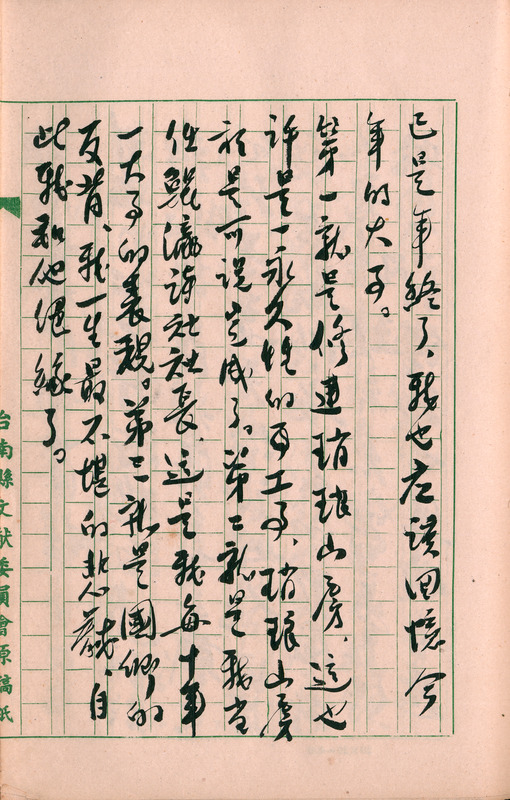 已是年終了、我也应該回憶今
年的大事。
第一就是修建琅琅山房、這也
許是一永久性的再工事、琅琅山房
於是可說完成了。第二就是我当
任鯤瀛詩社社長、這是我每十年
一大事的表現。第三就是國卿的
反背、我一生最不堪的悲劇、自
此我和他絕緣了。
台南縣文献委員會原稿紙